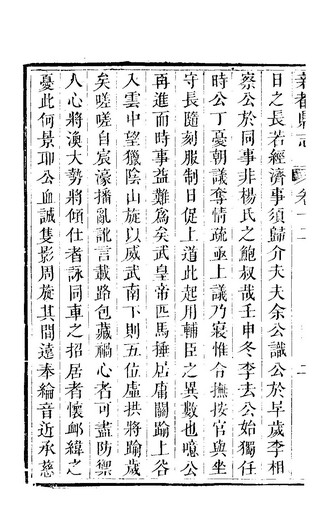 新都縣志 卷十二 二
日之長若經濟事須歸介夫夫余公識公於早歲李相
察公於同事非楊氏之鮑叔哉壬申冬李去公始獨任
時公丁憂朝議奪情疏亟上議乃寢惟令撫按官與坐
守長隨刻服制日促上道此起用輔臣之異數也噫公
再進而時事益難為矣武皇帝匹馬捶居庸關踰上谷
入雲中望獵陰山旋以威武南下則五位虛拱將踰歲
矣嗟嗟自宸濠播亂訛言載路包藏禍心者可盡防禦
人心將渙大勢將傾仕者詠同車之招居者懷䘏緯之
憂此何景耶公血誠隻影周旋其間遠奉綸音近承慈